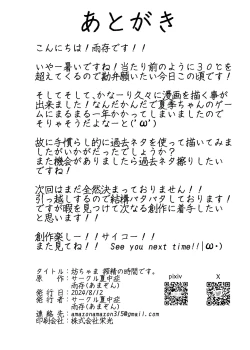 あとがき
こんにちは！雨存です！！
いやー暑いですね！当たり前のように３０℃を
超えてくるので勘弁願いたい今日この頃です！
そしてそして、かなーり久々に漫画を描く事が
出来ました！なんだかんだで夏季ちゃんのゲー
ムにまるまる一年かかってしまいましたので
そりゃそうだよなーと(´ω`)
故に手慣らし的に過去ネタを使って描いてみま
したがいかがだったでしょうか？
また機会がありましたら過去ネタ擦りしたい
ですね！
次回はまだ全然決まっておりません！！
引っ越しするので結構バタバタしております！
ですが暇を見つけて次なる創作に着手したい
と思います！！
創作楽しー！！サイコー！！
また見てね！！ See you next time!!|ω･)
タイトル：坊ちゃま 躾精の時間です。
原　作：サークル夏中症
雨存(あまぞん)
発行日：2024/8/12
発行者：サークル夏中症
雨存(あまぞん)
連絡先：amazonamazon315@gmail.com
印刷会社：株式会社栄光
pixiv
X